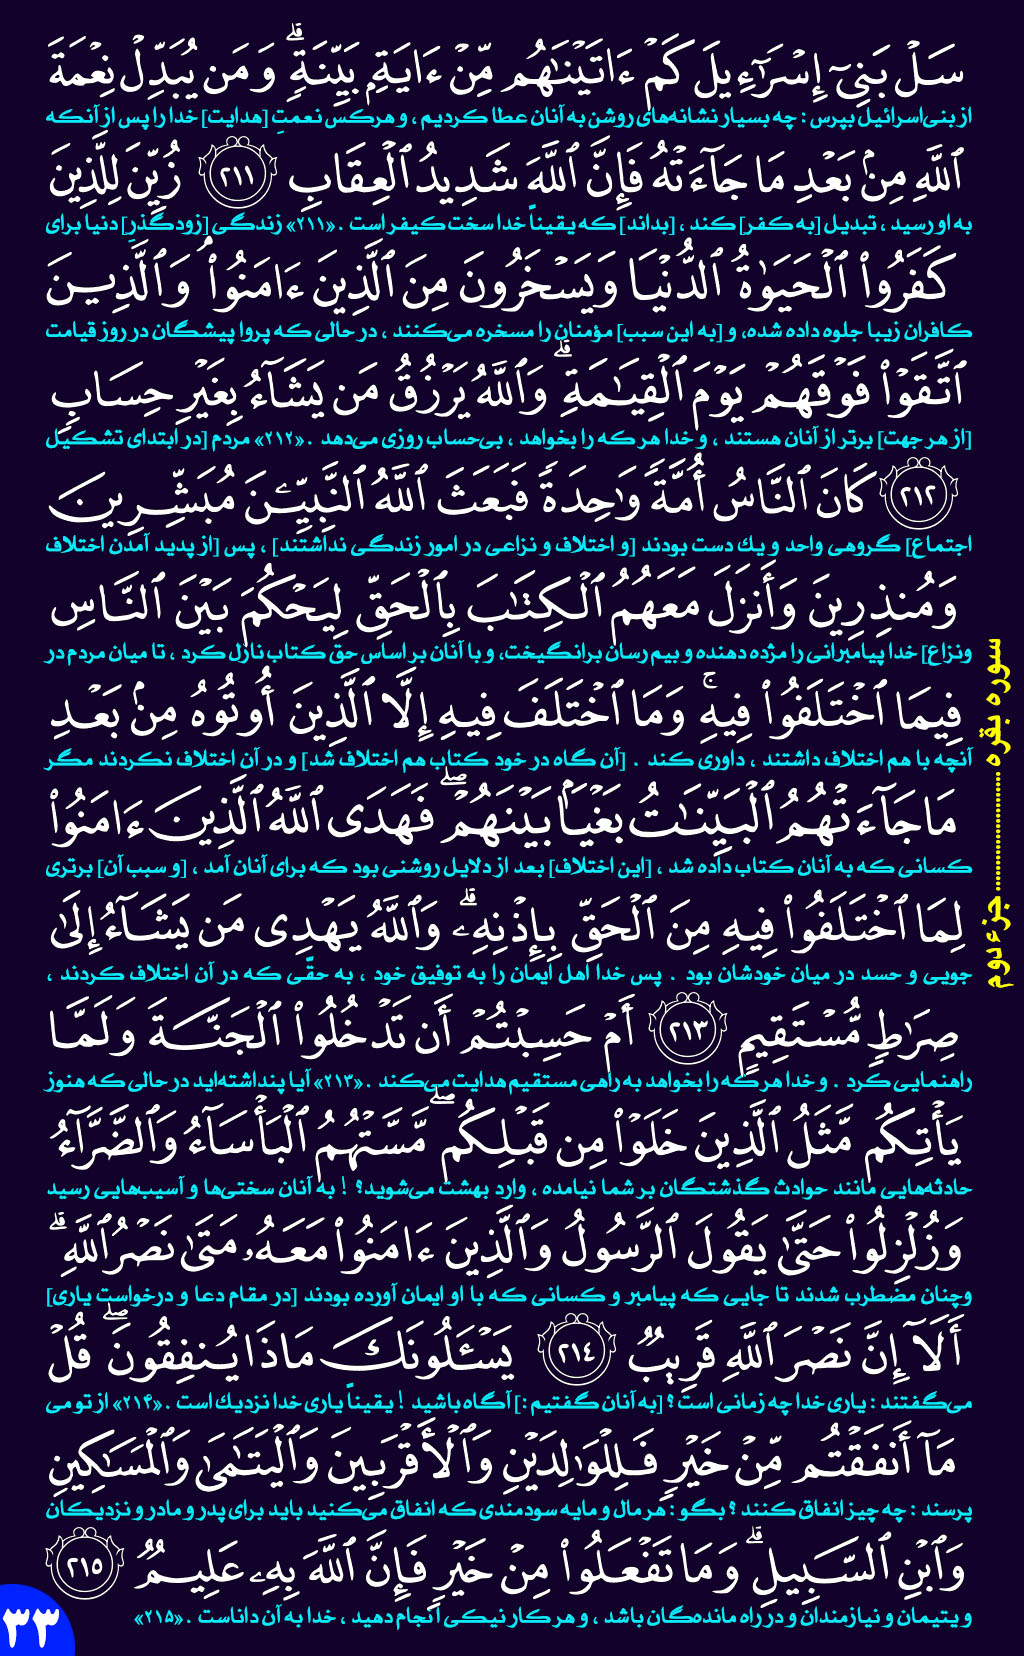 سَلْ بَنِىٓ إِسْرَٰٓءِيلَ كَمْ ءَاتَيْنَٰهُم مِّنْ ءَايَةٍۭ بَيِّنَةٍۗ وَمَن يُبَدِّلْ نِعْمَةَ
از بنی‌اسرائیل بپرس : چه بسیار نشانه‌های روشن به آنان عطا کردیم ، و هرکس نعمتِ [هدایت] خدا را پس از آنکه
ٱللَّهِ مِنۢ بَعْدِ مَا جَآءَتْهُ فَإِنَّ ٱللَّهَ شَدِيدُ ٱلْعِقَابِ ٢١١ زُيِّنَ لِلَّذِينَ
به او رسید ، تبدیل [به کفر] کند ، [بداند] که یقیناً خدا سخت کیفر است .«۲۱۱» زندگی [زودگذرِ] دنیا برای
كَفَرُوا۟ ٱلْحَيَوٰةُ ٱلدُّنْيَا وَيَسْخَرُونَ مِنَ ٱلَّذِينَ ءَامَنُوا۟ۘ وَٱلَّذِينَ
کافران زیبا جلوه داده شده، و [به این سبب] مؤمنان را مسخره می‌کنند ، در حالی که پروا پیشگان در روز قیامت
ٱتَّقَوْا۟ فَوْقَهُمْ يَوْمَ ٱلْقِيَٰمَةِۗ وَٱللَّهُ يَرْزُقُ مَن يَشَآءُ بِغَيْرِ حِسَابٍ
[از هر جهت] برتر از آنان هستند ، و خدا هر که را بخواهد ، بی‌حساب روزی می‌دهد .«۲۱۲» مردم [در ابتدای تشکیل
٢١٢ كَانَ ٱلنَّاسُ أُمَّةً وَٰحِدَةً فَبَعَثَ ٱللَّهُ ٱلنَّبِيِّـۧنَ مُبَشِّرِينَ
اجتماع] گروهی واحد و یك دست بودند [و اختلاف و نزاعی در امور زندگی نداشتند] ، پس [از پدید آمدن اختلاف
وَمُنذِرِينَ وَأَنزَلَ مَعَهُمُ ٱلْكِتَٰبَ بِٱلْحَقِّ لِيَحْكُمَ بَيْنَ ٱلنَّاسِ
ونزاع] خدا پیامبرانی را مژده دهنده و بیم رسان برانگیخت، و با آنان بر اساس حق کتاب نازل کرد ، تا میان مردم در
فِيمَا ٱخْتَلَفُوا۟ فِيهِۚ وَمَا ٱخْتَلَفَ فِيهِ إِلَّا ٱلَّذِينَ أُوتُوهُ مِنۢ بَعْدِ
آنچه با هم اختلاف داشتند ، داوری کند . [آن گاه در خود کتاب هم اختلاف شد] و در آن اختلاف نکردند مگر
مَا جَآءَتْهُمُ ٱلْبَيِّنَٰتُ بَغْيًۢا بَيْنَهُمْۖ فَهَدَى ٱللَّهُ ٱلَّذِينَ ءَامَنُوا۟
کسانی که به آنان کتاب داده شد ، [این اختلاف] بعد از دلایل روشنی بود که برای آنان آمد ، [و سبب آن] برتری
لِمَا ٱخْتَلَفُوا۟ فِيهِ مِنَ ٱلْحَقِّ بِإِذْنِهِۦۗ وَٱللَّهُ يَهْدِى مَن يَشَآءُ إِلَىٰ
جویی و حسد در میان خودشان بود . پس خدا اهل ایمان را به توفیق خود ، به حقّی که در آن اختلاف کردند ،
صِرَٰطٍ مُّسْتَقِيمٍ ٢١٣ أَمْ حَسِبْتُمْ أَن تَدْخُلُوا۟ ٱلْجَنَّةَ وَلَمَّا
راهنمایی کرد . و خدا هر که را بخواهد به راهی مستقیم هدایت می‌کند .«۲۱۳» آیا پنداشته‌اید در حالی که هنوز
يَأْتِكُم مَّثَلُ ٱلَّذِينَ خَلَوْا۟ مِن قَبْلِكُمۖ مَّسَّتْهُمُ ٱلْبَأْسَآءُ وَٱلضَّرَّآءُ
حادثه‌هایی مانند حوادث گذشتگان بر شما نیامده ، وارد بهشت می‌شوید؟ ! به آنان سختی‌ها و آسیب‌هایی رسید
وَزُلْزِلُوا۟ حَتَّىٰ يَقُولَ ٱلرَّسُولُ وَٱلَّذِينَ ءَامَنُوا۟ مَعَهُۥ مَتَىٰ نَصْرُ ٱللَّهِۗ
وچنان مضطرب شدند تا جایی که پیامبر و کسانی که با او ایمان آورده بودند [در مقام دعا و درخواست یاری]
أَلَآ إِنَّ نَصْرَ ٱللَّهِ قَرِيبٌ ٢١٤ يَسْـَٔلُونَكَ مَاذَا يُنفِقُونَۖ قُلْ
می‌گفتند : یاری خدا چه زمانی است ؟ [به آنان گفتیم :] آگاه باشید ! یقیناً یاری خدا نزدیك است .«۲۱۴» از تو می
مَآ أَنفَقْتُم مِّنْ خَيْرٍ فَلِلْوَٰلِدَيْنِ وَٱلْأَقْرَبِينَ وَٱلْيَتَٰمَىٰ وَٱلْمَسَٰكِينِ
پرسند : چه چیز انفاق کنند ؟ بگو : هر مال و مایه سودمندی که انفاق می‌کنید باید برای پدر و مادر و نزدیکان
وَٱبْنِ ٱلسَّبِيلِۗ وَمَا تَفْعَلُوا۟ مِنْ خَيْرٍ فَإِنَّ ٱللَّهَ بِهِۦ عَلِيمٌ ٢١٥
و یتیمان و نیازمندان و در راه ماندهگان باشد ، و هر کار نیکی انجام دهید ، خدا به آن داناست .«۲۱۵»
سوره بقره .............................. جزء دوم
٣٣